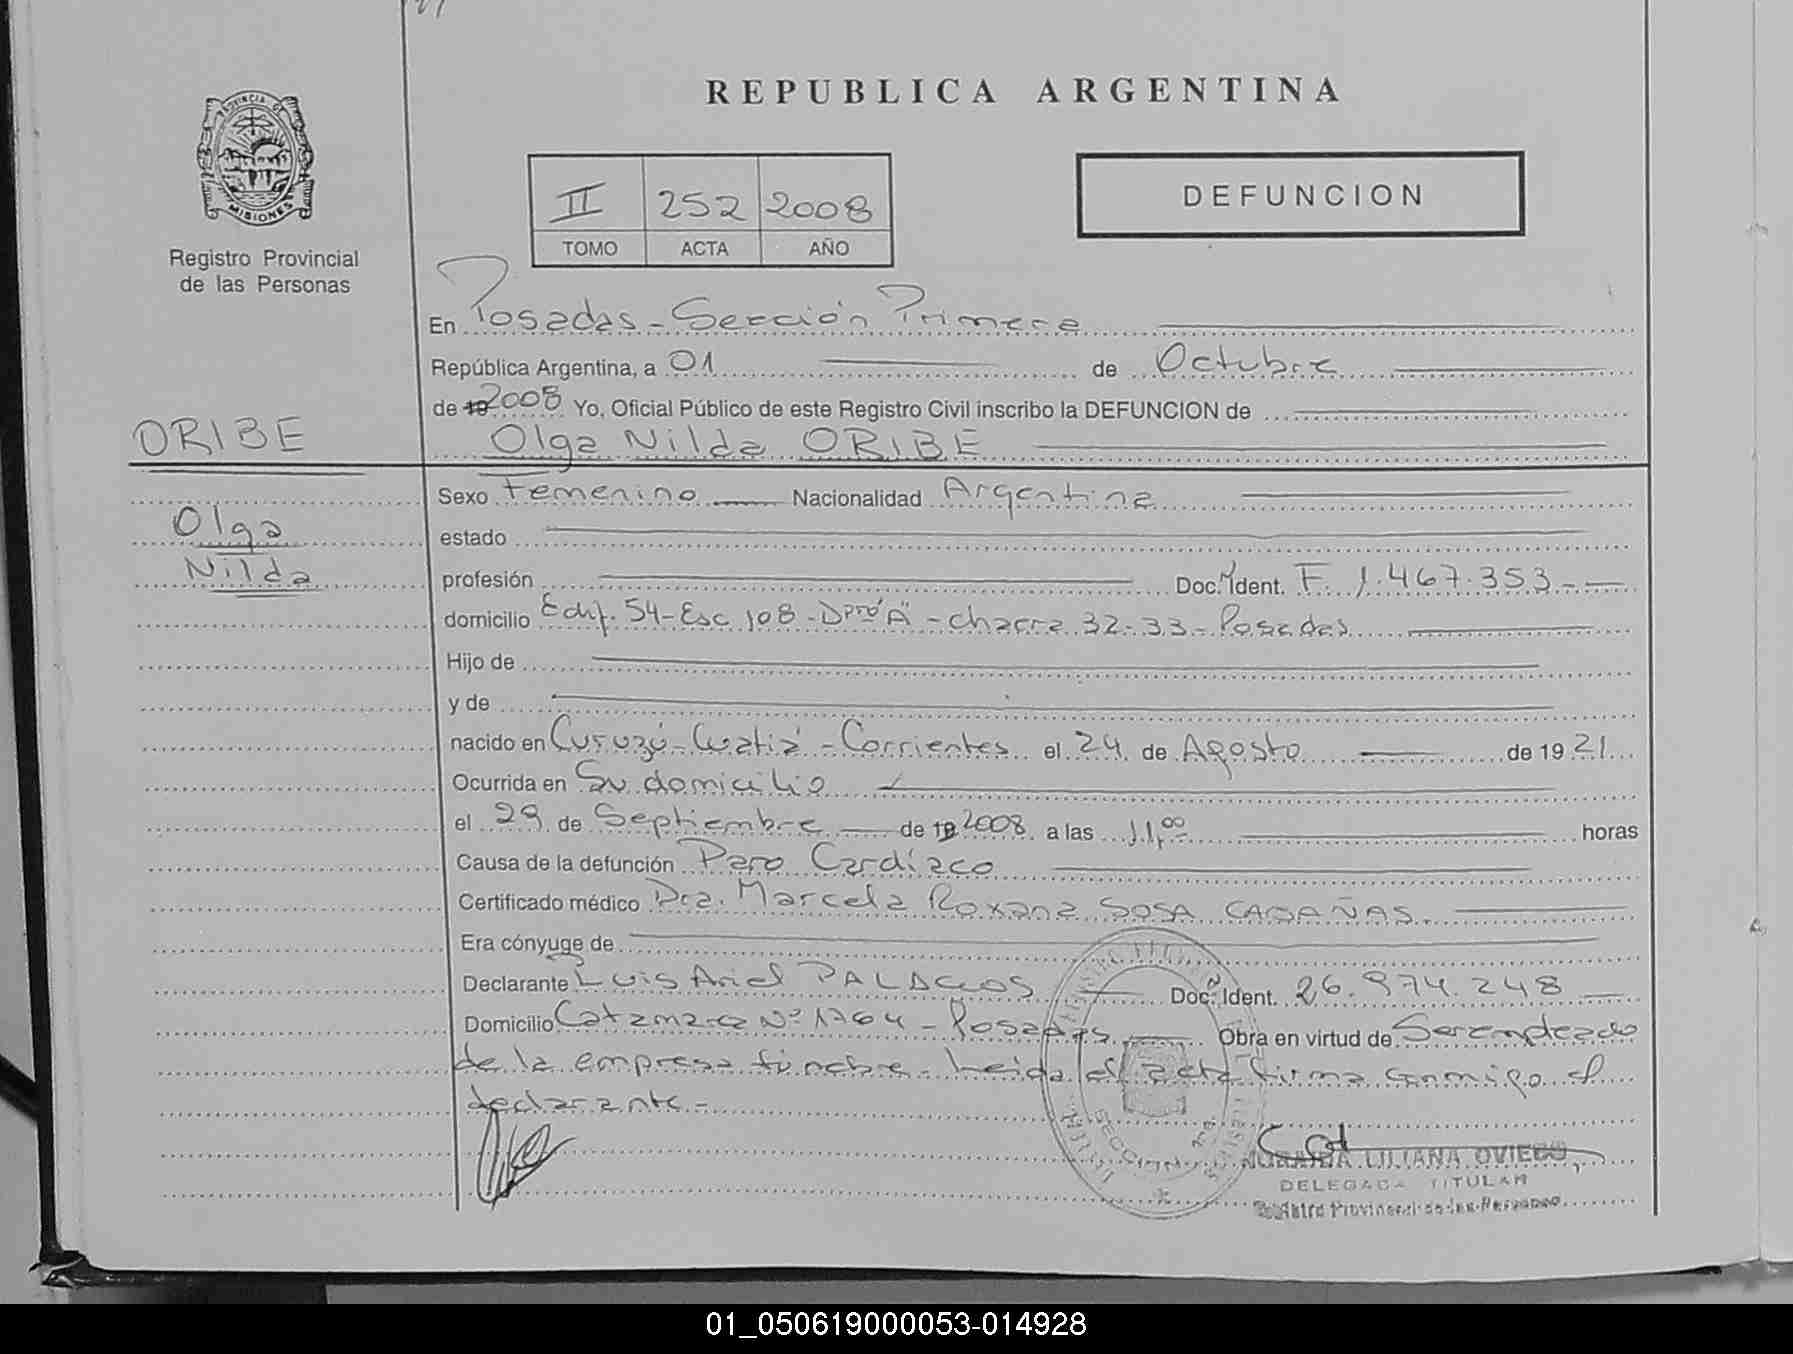 REPUBLICA ARGENTINA
PROVINCIA DE
MISIONES
Registro Provincial
de las Personas
II 252 2008
TOMO ACTA AÑO
DEFUNCION
En Posadas - Sección Primera
República Argentina, a 01 de Octubre
de 19 2008 Yo, Oficial Público de este Registro Civil inscribo la DEFUNCION de
ORIBE
Olga Nilda ORIBE
Olga
Nilda
Sexo Femenino Nacionalidad Argentina
estado
profesión Doc. Ident. F. 1.467.353.-
domicilio Edif. 54-Esc 108-Dpto "A" - chacra 32-33- Posadas
Hijo de
y de
nacido en Curuzú-Cuatiá - Corrientes el 24 de Agosto de 1921
Ocurrida en Su domicilio
el 29 de Septiembre de 19 2008 a las 11,00 horas
Causa de la defunción Paro Cardíaco
Certificado médico Dra. Marcela Roxana SOSA CABAÑAS
Era cónyuge de
Declarante Luis Ariel PALACIOS Doc. Ident. 26.974.248
Domicilio Catamarca Nº 1764 - Posadas Obra en virtud de Ser empleado
de la empresa fúnebre - Leida el acta firma conmigo el
declarante -
SECCION
LILIANA OVIEDO
DELEGADA TITULAR
Registro Provincial de las Personas
01_050619000053-014928